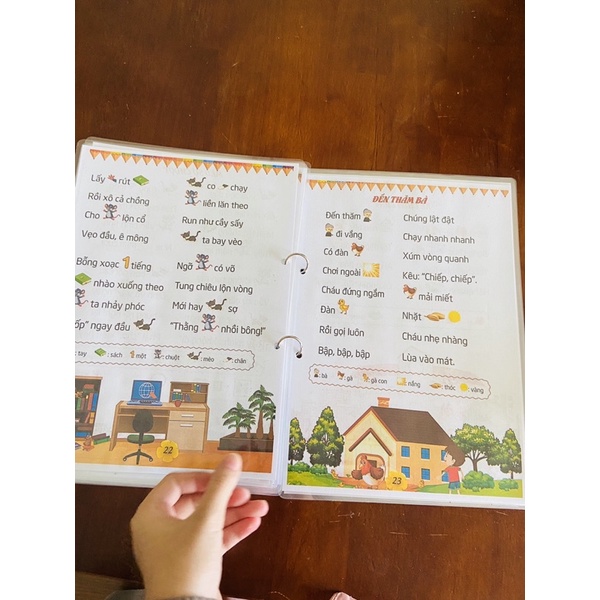 Lấy rút
Rồi xô cả chồng
Cho lộn cổ
Vẹo đầu, ê mông
Bỗng xoạc tiếng
nhào xuống theo
ta nhảy phóc
ốp" ngay đầu
co chạy
liền lăn theo
Run như cầy sấy
ta bay vèo
Ngỡ có võ
Tung chiêu lộn vòng
Mới hay sợ
"Thằng nhồi bông!"
: tay : sách 1 một : chuột : mèo : chân
22
ĐẾN THĂM BÀ
Đến thăm
đi vắng
Có đàn
Chơi ngoài
Cháu đứng ngắm
Đàn
Rồi gọi luôn
Bập, bập, bập
Chúng lật đật
Chạy nhanh nhanh
Xúm vòng quanh
Kêu: "Chiếp, chiếp".
mải miết
Nhặt
Cháu nhẹ nhàng
Lùa vào mát.
: bà : gà : gà con : nắng : thóc : vàng
23